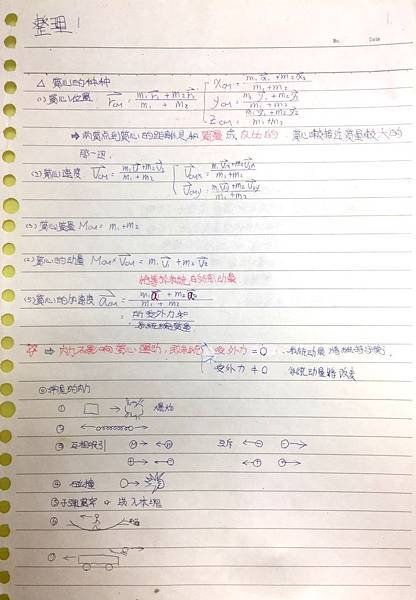 整理 1
No. Date
△ 質心的種種
(1) 質心位置 r⃗cm = (m₁r⃗₁ + m₂r⃗₂) / (m₁ + m₂)
xcm = (m₁x⃗₁ + m₂x⃗₂) / (m₁ + m₂)
ycm = (m₁y⃗₁ + m₂y⃗₂) / (m₁ + m₂)
zcm = / (m₁ + m₂)
⇒ 兩質点到質心的距離是和質量成反比的 質心較接近質量較大的
那一邊.
(2) 質心速度 V⃗cm = (m₁V⃗₁ + m₂V⃗₂) / (m₁ + m₂)
V⃗cmx = (m₁V⃗₁x + m₂V⃗₂x) / (m₁ + m₂)
V⃗cmy = (m₁V⃗₁y + m₂V⃗₂y) / (m₁ + m₂)
(3) 質心質量 Mcm = m₁ + m₂
(4) 質心的动量 Mcm × V⃗cm = m₁V⃗₁ + m₂V⃗₂
恰等於系統的總动量
(5) 質心的加速度 a⃗cm = (m₁a⃗₁ + m₂a⃗₂) / (m₁ + m₂)
= 所受外力和 / 系統總質量
⇒ 内力不影响質心運动, 系統 受外力 = 0 系統动量將維持守恆.
受外力 ≠ 0 系統动量將改变
的内力
① 爆炸
②
③ 互相吸引 互斥
④ 碰撞
⑤ 子弹 入木塊
⑥
⑦